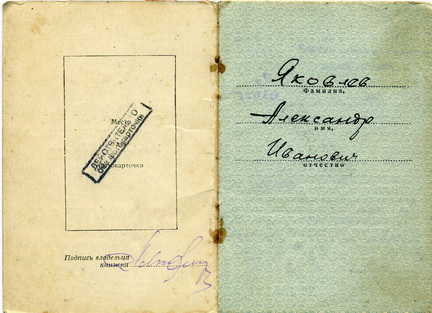 Место
для
фотокарточки
ДЕЙСТВИТЕЛЬНО
БЕЗ ФОТОКАРТОЧКИ
Подпись владельца
книжки
Яковлев
Фамилия,
Александр
имя,
Иванович
отчество